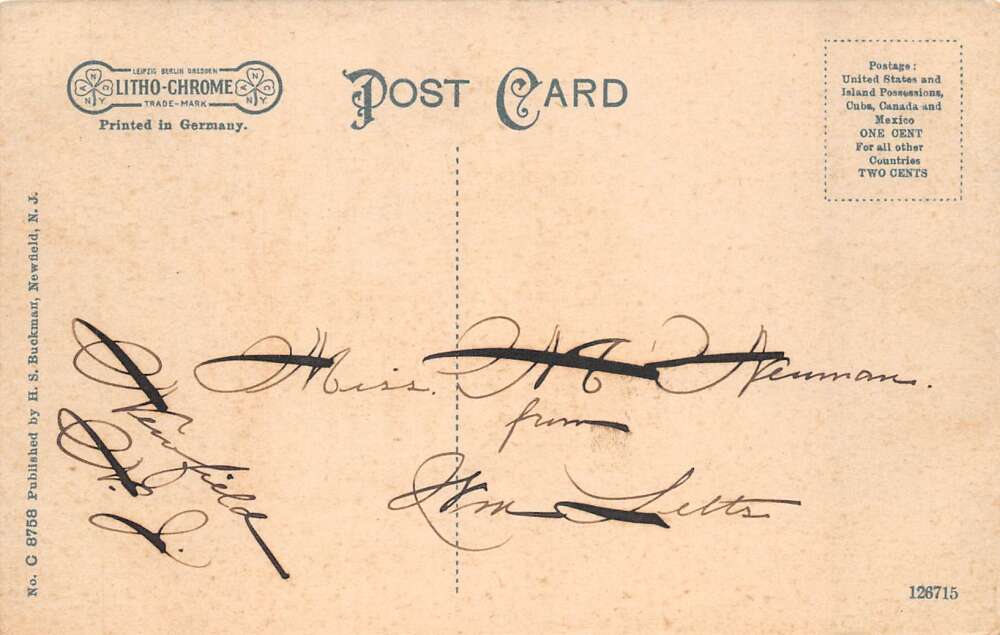 LEIPZIG BERLIN DRESDEN
LITHO-CHROME
TRADE-MARK
Printed in Germany.
POST CARD
Postage:
United States and
Island Possessions,
Cuba, Canada and
Mexico
ONE CENT
For all other
Countries
TWO CENTS
No. C 8758 Published by H. S. Buckman, Newfield, N. J.
Miss. M Neuman.
from
Wm Letts
Newfield
N. J.
126715